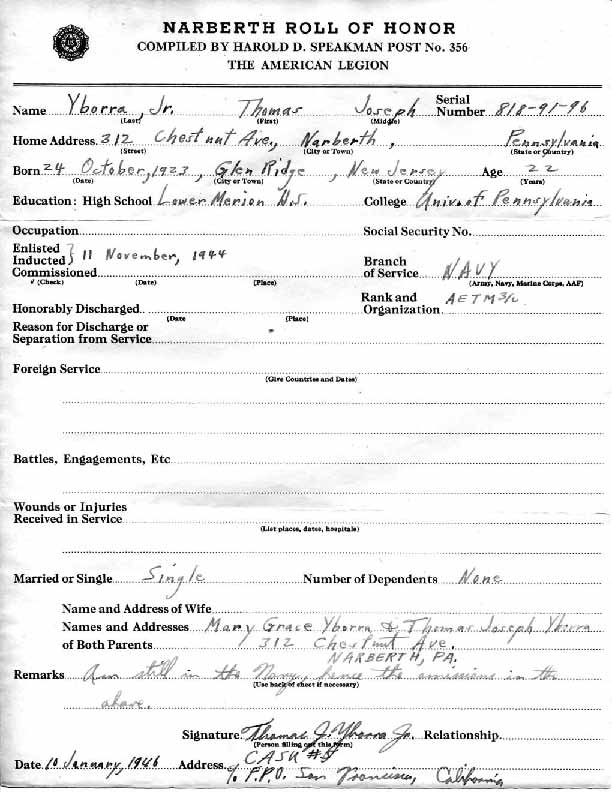 NARBERTH ROLL OF HONOR
COMPILED BY HAROLD D. SPEAKMAN POST No. 356
THE AMERICAN LEGION
Name Yborra, Jr. Thomas Joseph Serial Number 818-91-96
(Last) (First) (Middle)
Home Address 312 Chestnut Ave., Narberth, Pennsylvania
(Street) (City or Town) (State or Country)
Born 24 October, 1923, Glen Ridge, New Jersey Age 22
(Date) (City or Town) (State or Country) (Years)
Education: High School Lower Merion H.S. College Univ. of Pennsylvania
Occupation Social Security No.
Enlisted
Inducted } 11 November, 1944 Branch
Commissioned of Service NAVY
# (Check) (Date) (Place) (Army, Navy, Marine Corps, AAF)
Rank and AETM3/c
Honorably Discharged Organization
(Date (Place)
Reason for Discharge or
Separation from Service
Foreign Service
(Give Countries and Dates)
Battles, Engagements, Etc
Wounds or Injuries
Received in Service
(List places, dates, hospitals)
Married or Single Single Number of Dependents None
Name and Address of Wife
Names and Addresses Mary Grace Yborra & Thomas Joseph Yborra
of Both Parents 312 Chestnut Ave.
NARBERTH, PA.
Remarks Am still in the Navy, hence the omissions in the
(Use back of sheet if necessary)
above.
Signature Thomas J. Yborra Jr. Relationship
(Person filling out this form)
Date 10 January, 1946 Address CASU #5
% F.P.O. San Francisco, California